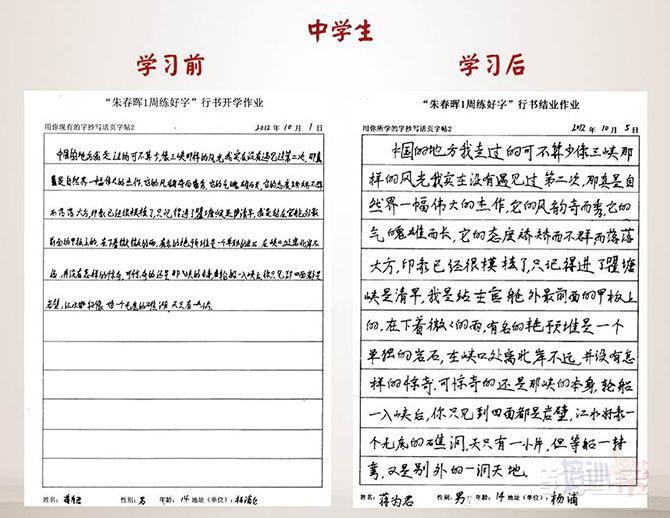 中学生
学习前
学习后
“朱春晖1周练好字”行书开学作业
用你现有的字抄写活页字帖2 2012年10月1日
中国的地方我走过的可不算少像三峡那样的风光我实在没有遇见过第二次,那真
是自然界一幅伟大的杰作,它的风韵奇而秀,它的气魄雄而长,它的态度矫矫不群
而落落大方,印象已经很模糊了,只记得进了瞿塘峡是清早,我是站在官舱外最
前面的甲板上的,在下着微微的雨,有名的艳预堆是一个单独的岩石,在峡口处离北岸不
远,并没有怎样的惊奇,可惊奇的还是那峡的本身轮船一入峡后,你只见到四面都是
岩壁,江水好像一个无底的礁洞,天只有一小片
姓名: 性别:男 年龄:14 地址(单位):杨浦区
“朱春晖1周练好字”行书结业作业
用你所学的字抄写活页字帖2 2012年10月5日
中国的地方我走过的可不算少像三峡那
样的风光我实在没有遇见过第二次,那真是自
然界一幅伟大的杰作,它的风韵奇而秀,它的
气魄雄而长,它的态度矫矫而不群而落落
大方,印象已经很模糊了,只记得进了瞿塘
峡是清早,我是站在官舱外最前面的甲板上
的,在下着微々的雨,有名的艳预堆是一个
单独的岩石,在峡口处离北岸不远,并没有怎
样的惊奇,可惊奇的还是那峡的本身,轮船
一入峡后,你只见到四面都是岩壁,江水好象一
个无底的礁洞,天只有一小片,但等船一转
弯,又是别外的一洞天地.
姓名:蒋为君 性别:男 年龄:14 地址(单位):杨浦